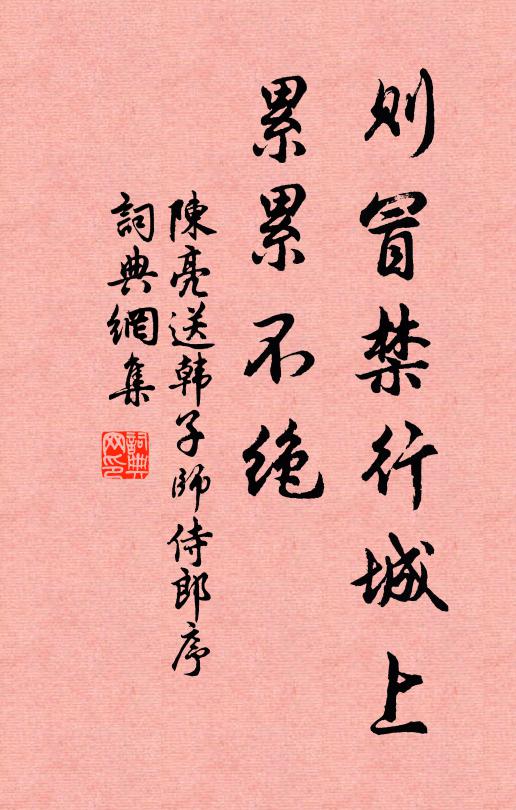 則冒禁行城上
累累不絶
陳亮送韩子師侍郎序
詞典網集
詞典网印